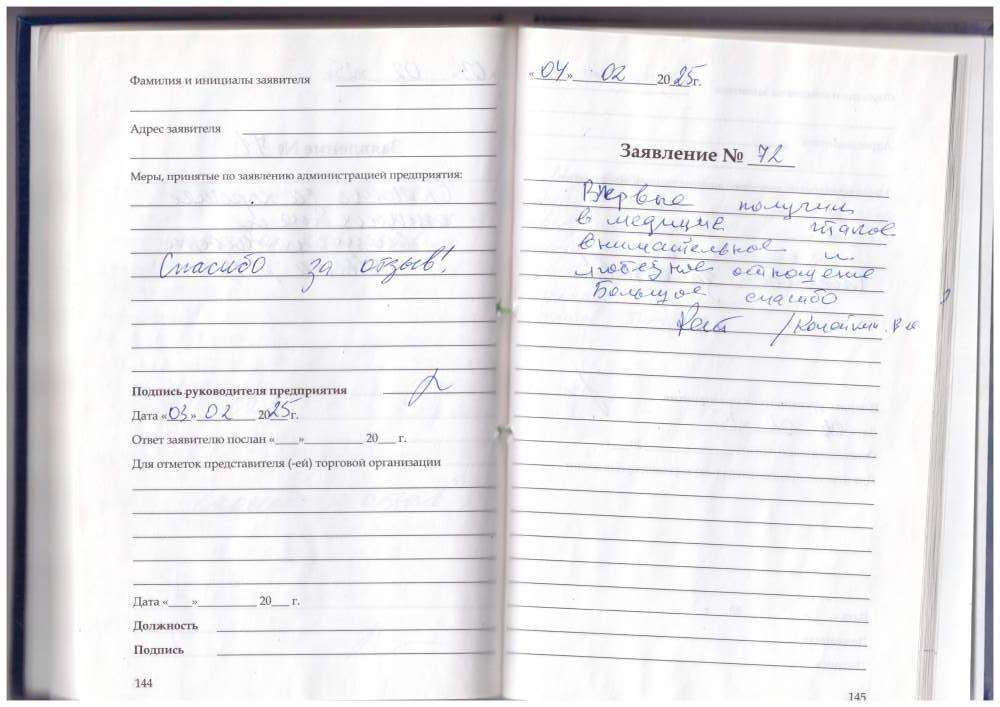 Фамилия и инициалы заявителя
Адрес заявителя
Меры, принятые по заявлению администрацией предприятия:
Спасибо за отзыв!
Подпись руководителя предприятия
Дата «03» 02 2025г.
Ответ заявителю послан «___»__________ 20___ г.
Для отметок представителя (-ей) торговой организации
Дата «____»__________ 20___ г.
Должность
Подпись
144
«04» 02 2025г.
Заявление № 72
Впервые получил
в медицине такое
внимательное и
любезное отношение
Большое спасибо
145